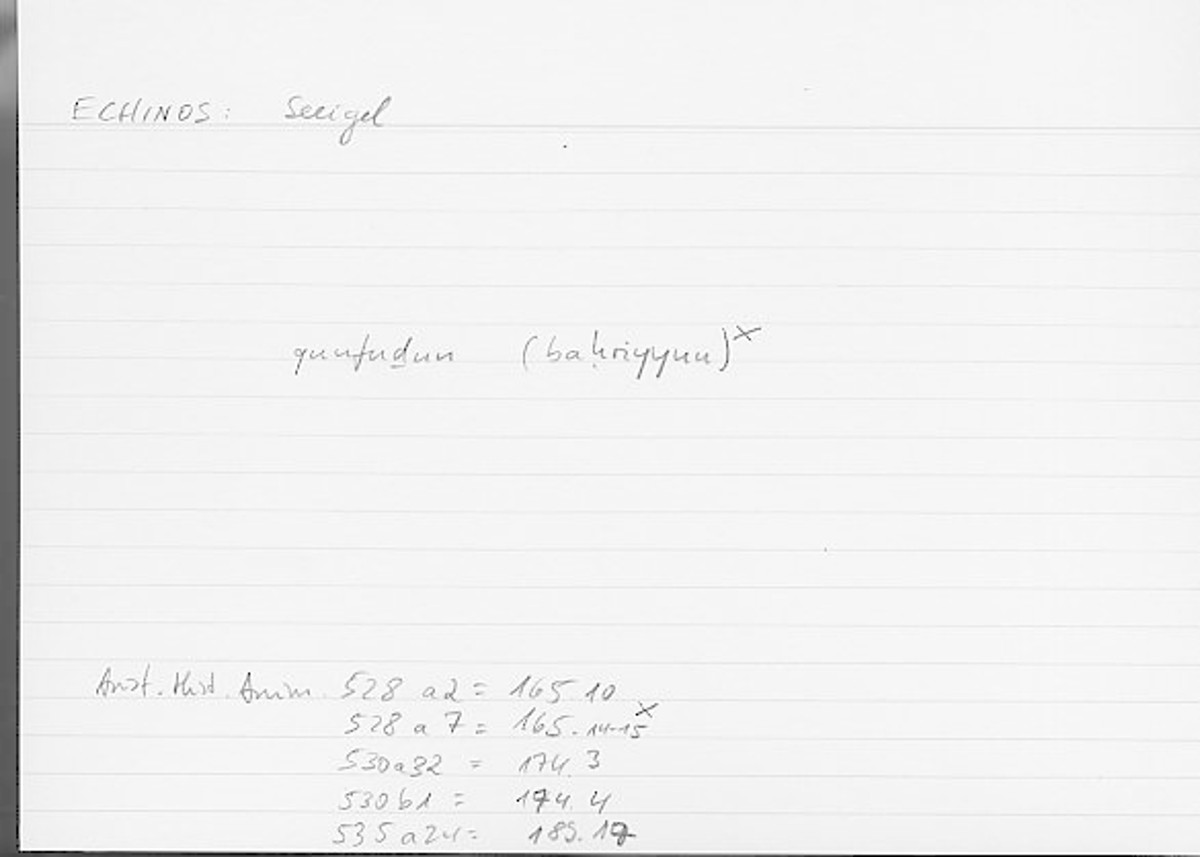 ECHINOS: Seeigel
qunfuḏun (baḥriyyun)ˣ
Arist. Hist. Anim. 528 a2 = 165.10
528 a 7 = 165.14-15ˣ
530a32 = 174.3
530b1 = 174.4
535a24 = 189.17